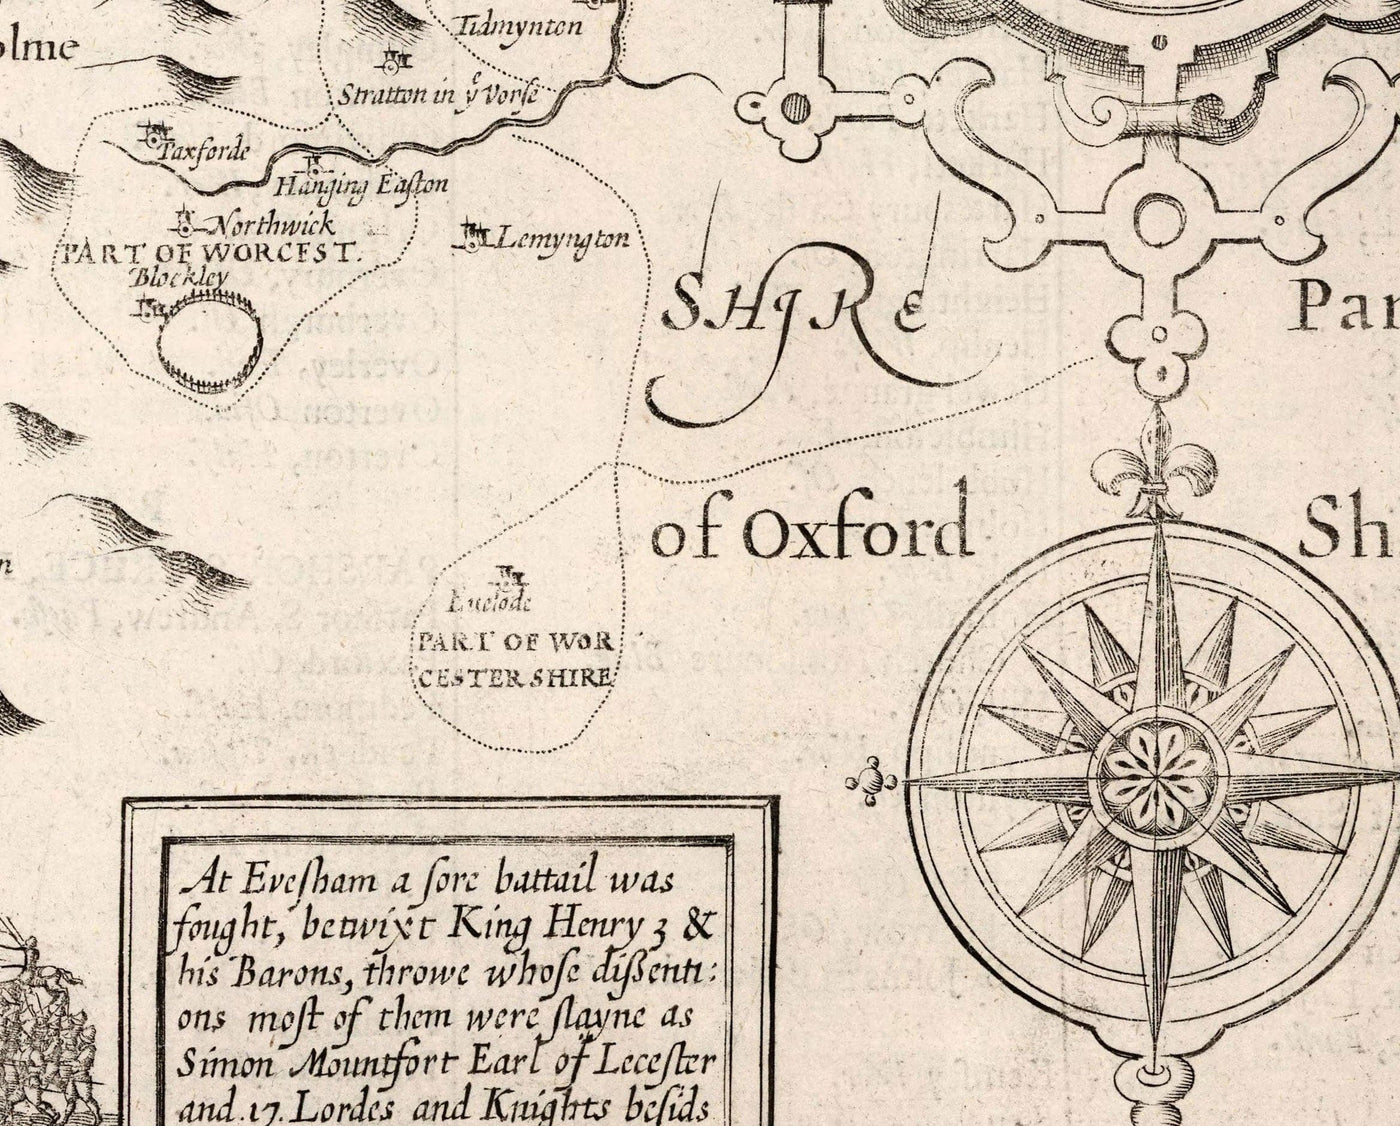 olme
Tidmynton
Stratton in yͤ Vorse
Taxforde
Hanging Easton
Northwick
Lemyngton
PART OF WORCEST.
Blockley
SHIRE
Par
of Oxford
Sh
n
Euelode
PART OF WOR
CESTER SHIRE
At Eveſham a ſore battail was
fought, betwixt King Henry 3 &
his Barons, throwe whoſe diſſenti:
ons moſt of them were ſlayne as
Simon Mountfort Earl of Leceſter
and .17. Lordes and Knights beſids